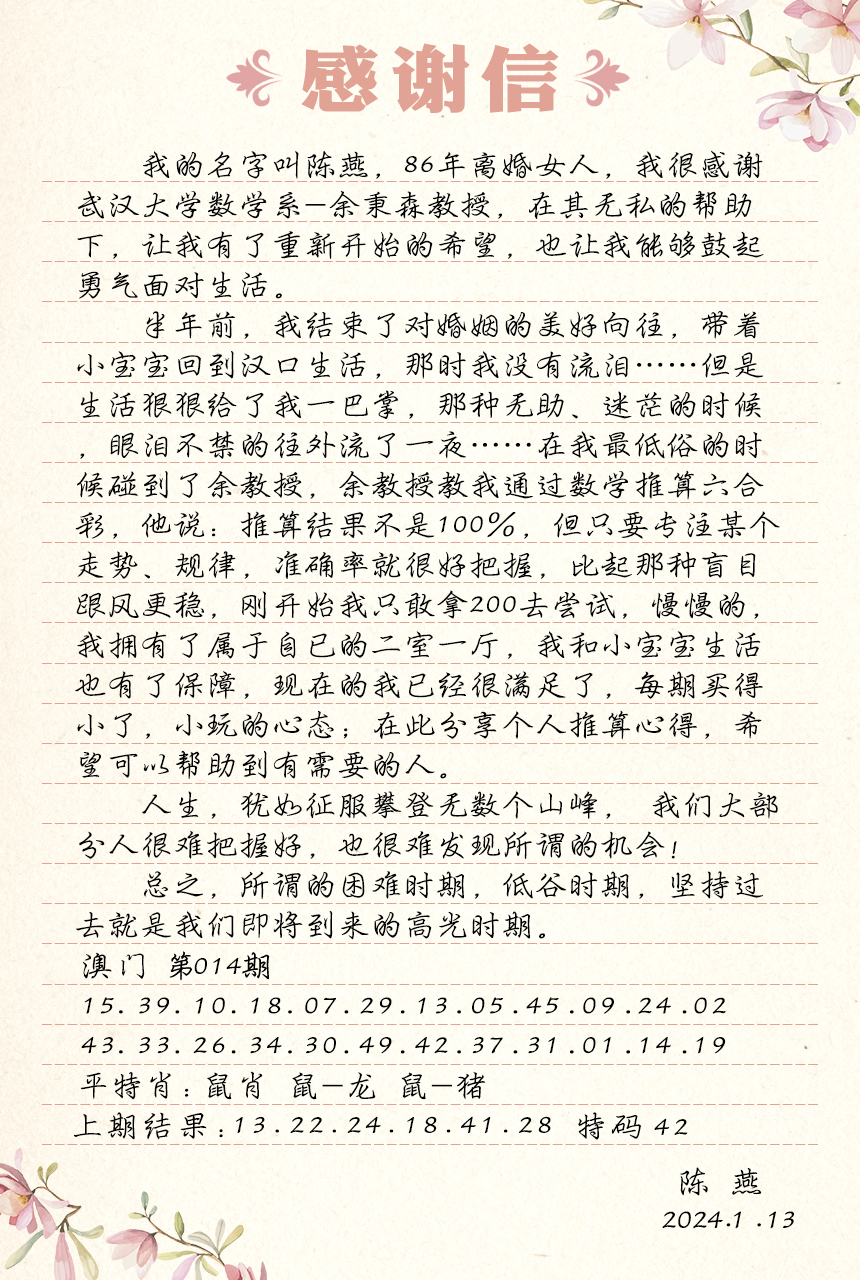 感谢信
我的名字叫陈燕，86年离婚女人，我很感谢
武汉大学数学系—余秉森教授，在其无私的帮助
下，让我有了重新开始的希望，也让我能够鼓起
勇气面对生活。
半年前，我结束了对婚姻的美好向往，带着
小宝宝回到汉口生活，那时我没有流泪……但是
生活狠狠给了我一巴掌，那种无助、迷茫的时候
，眼泪不禁的往外流了一夜……在我最低俗的时
候碰到了余教授，余教授教我通过数学推算六合
彩，他说：推算结果不是100%，但只要专注某个
走势、规律，准确率就很好把握，比起那种盲目
跟风更稳，刚开始我只敢拿200去尝试，慢慢的，
我拥有了属于自已的二室一厅，我和小宝宝生活
也有了保障，现在的我已经很满足了，每期买得
小了，小玩的心态；在此分享个人推算心得，希
望可以帮助到有需要的人。
人生，犹如征服攀登无数个山峰， 我们大部
分人很难把握好，也很难发现所谓的机会！
总之，所谓的困难时期，低谷时期，坚持过
去就是我们即将到来的高光时期。
澳门 第014期
15.39.10.18.07.29.13.05.45.09.24.02
43.33.26.34.30.49.42.37.31.01.14.19
平特肖：鼠肖 鼠—龙 鼠—猪
上期结果：13.22.24.18.41.28 特码 42
陈 燕
2024.1.13